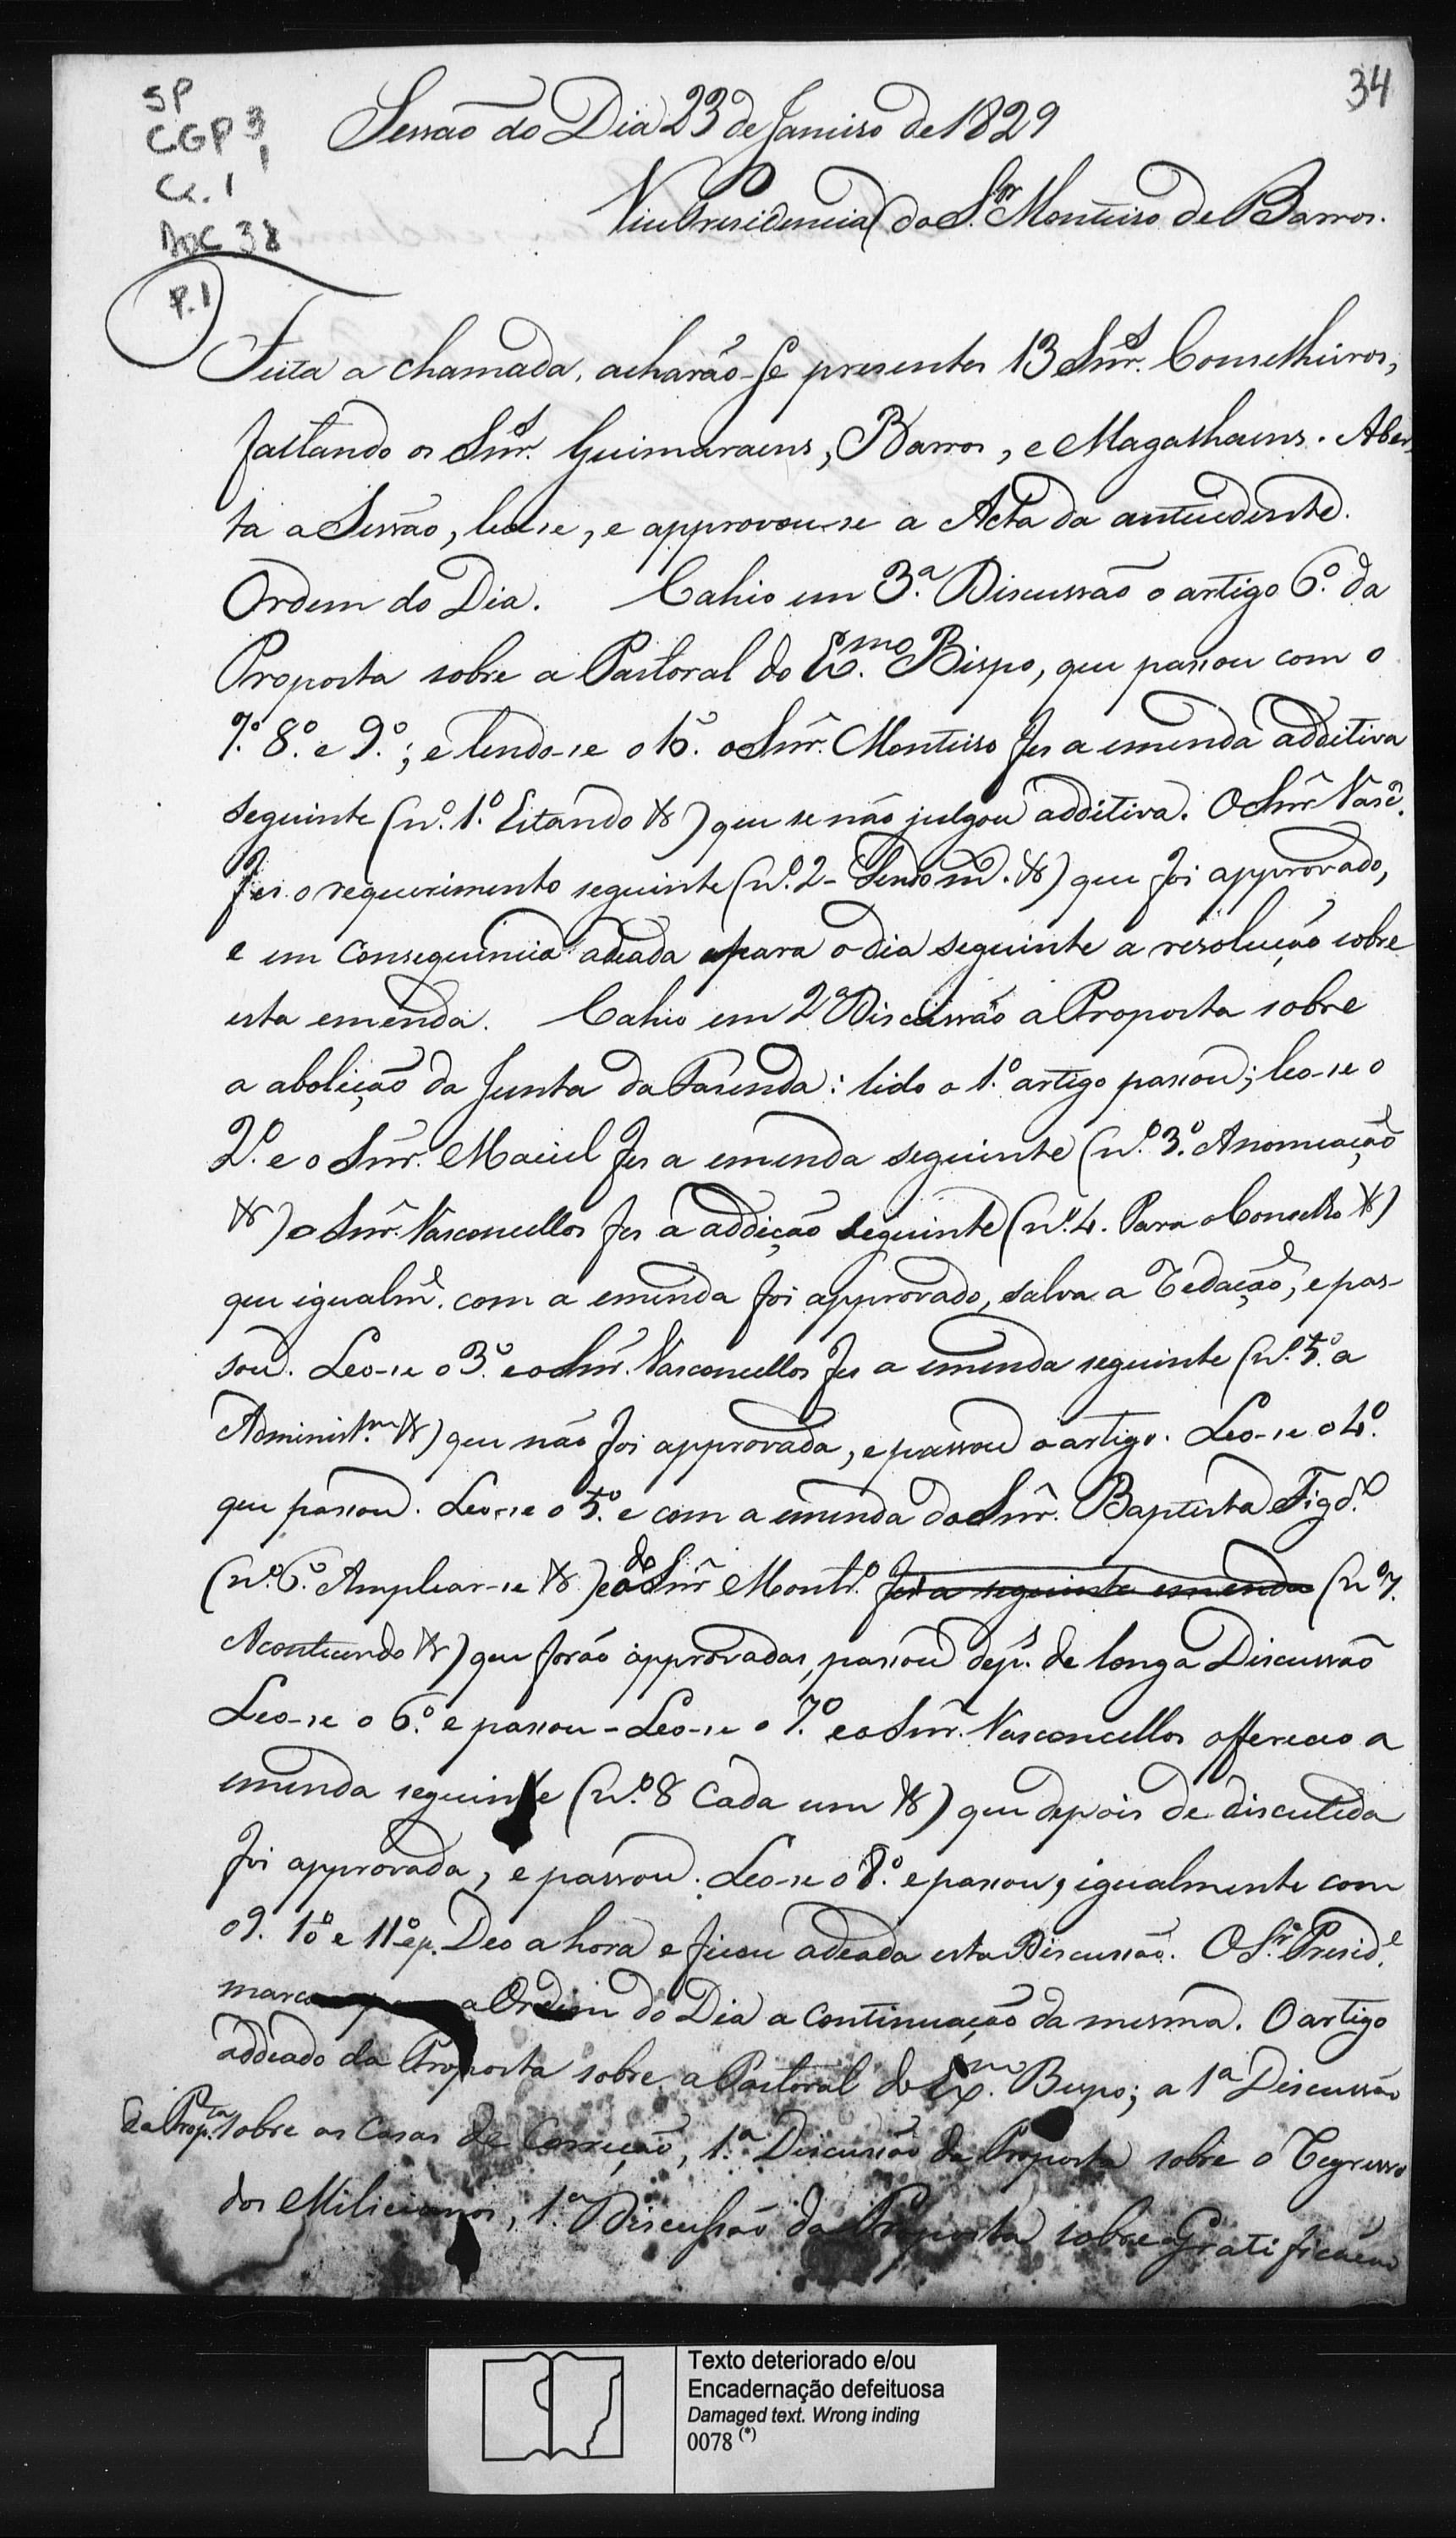 34
SP
CGP 3,1
Cx. 1
Doc 38
P. 1
Sessão do Dia 23 de Janeiro de 1829
Vice Presidencia do Sr. Monteiro de Barros.
Feita a chamada, acharão-se presentes 13 Snrs. Conselheiros,
faltando os Snrs. Guimaraens, Barros, e Magalhaens. Aber
ta a Sessão, leo-se, e approvou-se a Acta da antecedente.
Ordem do Dia. Cahio em 3.ª Discussão o artigo 6.º da
Proposta sobre a Pastoral do Ex.mo Bispo, que passou com o
7.º 8.º e 9.º; e lendo-se o 10.º o Snr. Monteiro fes a emenda additiva
seguinte (n.º 1.º Estando &) que se não julgou additiva. O Snr Vasc.os
fes o requerimento seguinte (n.º 2 - Sendo m. &) que foi approvado,
e em consequencia adeada para o dia seguinte a resolução sobre
esta emenda. Cahio em 2.ª Discussão a Proposta sobre
a abolição da Junta da Fasenda: lido o 1.º artigo passou; leo-se o
2.º e o Snr. Maciel fes a emenda seguinte (n.º 3.º A nomeação
&) o Snr. Vasconcellos fes a addição seguinte (n.º 4. Para o Conselho &)
que igualm.e com a emenda foi approvado, salva a redação, e pas-
sou. Leo-se o 3.º e o Snr. Vasconcellos fes a emenda seguinte (n.º 5.º a
Administ.am &) que não foi approvada, e passou o artigo. Leo-se o 4.º
que passou. Leo-se o 5.º e com a emenda do Snr. Baptista Figd.o
(n.º 6.º Amplear-se &) e do Snr Montr.o fes a seguinte emenda (n.º 7.
Acontecendo &) que forão approvadas, passou dep.s de longa Discussão
Leo-se o 6.º e passou - Leo-se o 7.º e o Snr. Vasconcellos offereceo a
emenda seguinte (n.º 8 Cada um &) que depois de discutida
foi approvada, e passou. Leo-se o 8.º e passou, igualmente com
o 9. 10.º e 11.º e p. Deo a hora e ficou adeada esta Discussão. O Sr. Presid.e
marcou para a Ordem do Dia a continuação da mesma. O artigo
addeado da Proposta sobre a Pastoral do Ex.mo Bispo; a 1.ª Discussão
da Prop.ta sobre as Casas de Correção, 1.ª Discussão da Proposta sobre o regresso
dos Milicianos, 1.ª Discussão da Proposta sobre Gratificação
Texto deteriorado e/ou
Encadernação defeituosa
Damaged text. Wrong inding
0078 (*)